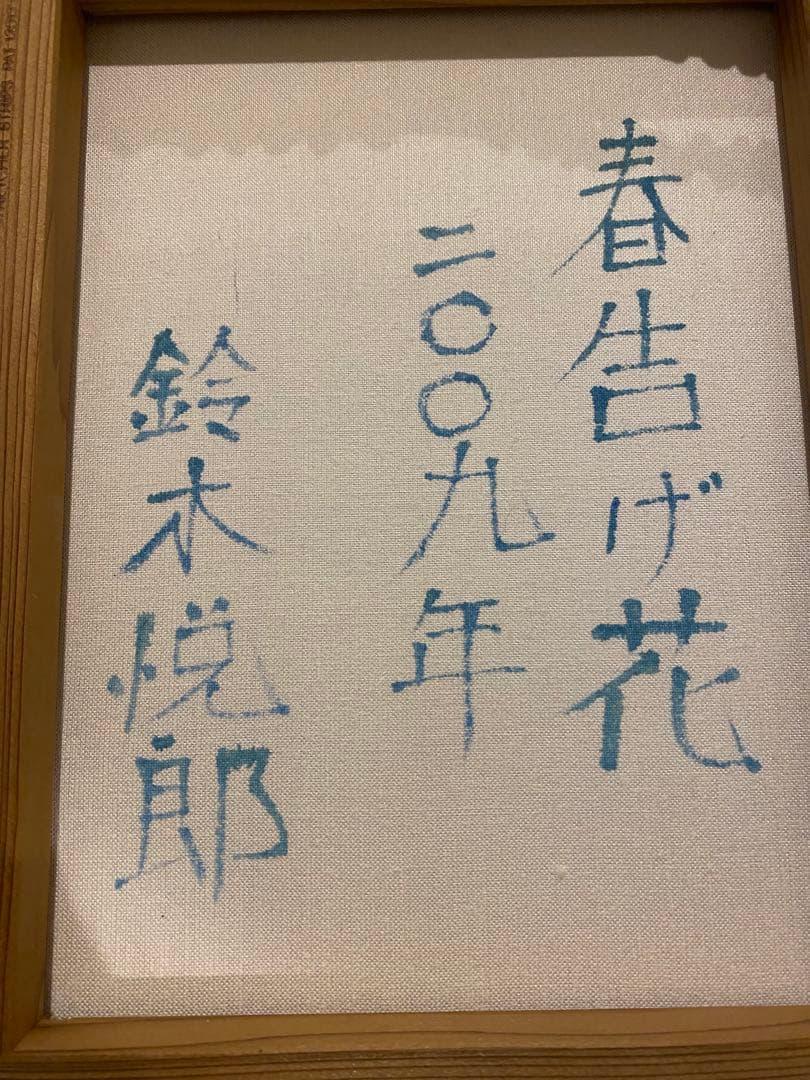 春告げ花
二〇〇九年
鈴木悦郎